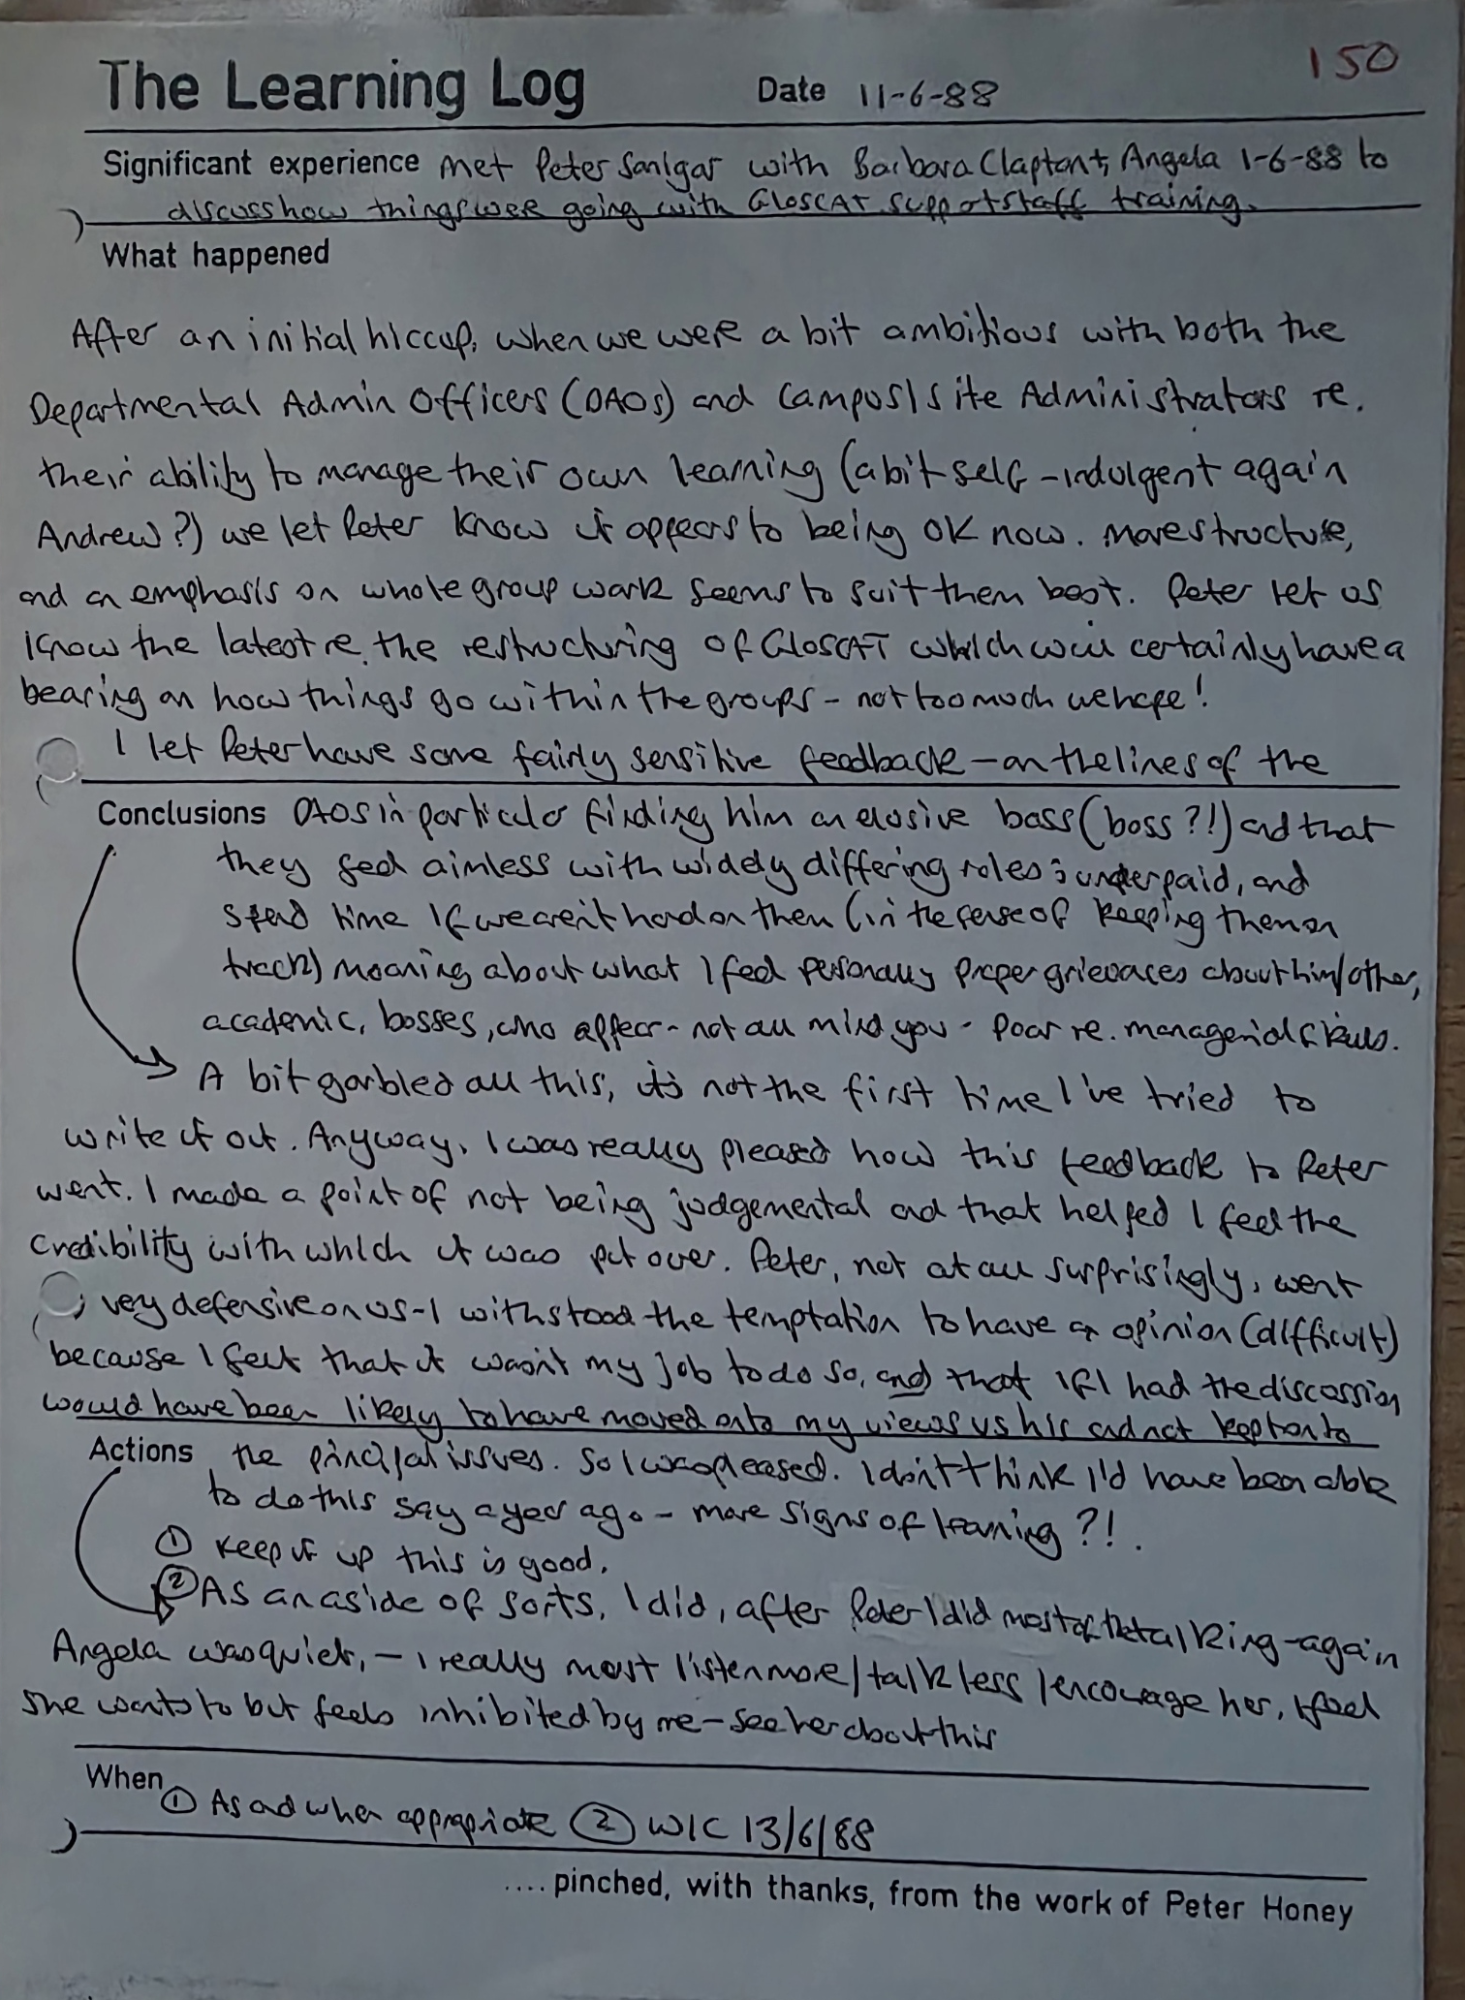 150
The Learning Log Date 11-6-88
Significant experience Met Peter Sanigar with Barbara Clapton + Angela 1-6-88 to
discuss how things were going with GLOSCAT support staff training.
What happened
After an initial hiccup, when we were a bit ambitious with both the
Departmental Admin Officers (DAOs) and Campus/Site Administrators re.
their ability to manage their own learning (a bit self-indulgent again
Andrew?) we let Peter know it appears to being OK now. More structure,
and an emphasis on whole group work seems to suit them best. Peter let us
know the latest re. the restructuring of GLOSCAT which will certainly have a
bearing on how things go within the groups - not too much we hope!
I let Peter have some fairly sensitive feedback - on the lines of the
Conclusions DAOs in particular finding him an elusive boss (boss?!) and that
they feel aimless with widely differing roles; underpaid, and
spend time if we aren't hard on them (in the sense of keeping them on
track) moaning about what I feel personally proper grievances about him/other,
academic, bosses, who appear - not all mind you - poor re. managerial skills.
A bit garbled all this, it's not the first time I've tried to
write it out. Anyway, I was really pleased how this feedback to Peter
went. I made a point of not being judgemental and that helped I feel the
credibility with which it was put over. Peter, not at all surprisingly, went
very defensive on us - I withstood the temptation to have an opinion (difficult)
because I felt that it wasn't my job to do so, and that if I had the discussion
would have been likely to have moved onto my views vs his and not kept onto
Actions the principal issues. So I was pleased. I don't think I'd have been able
to do this say a year ago - more signs of learning?!.
① Keep it up this is good.
② As an aside of sorts, I did, after Peter I did most of the talking - again
Angela was quiet, - I really must listen more/talk less/encourage her, I feel
she wants to but feels inhibited by me - see her about this
When
① As and when appropriate ② W/C 13/6/88
.... pinched, with thanks, from the work of Peter Honey